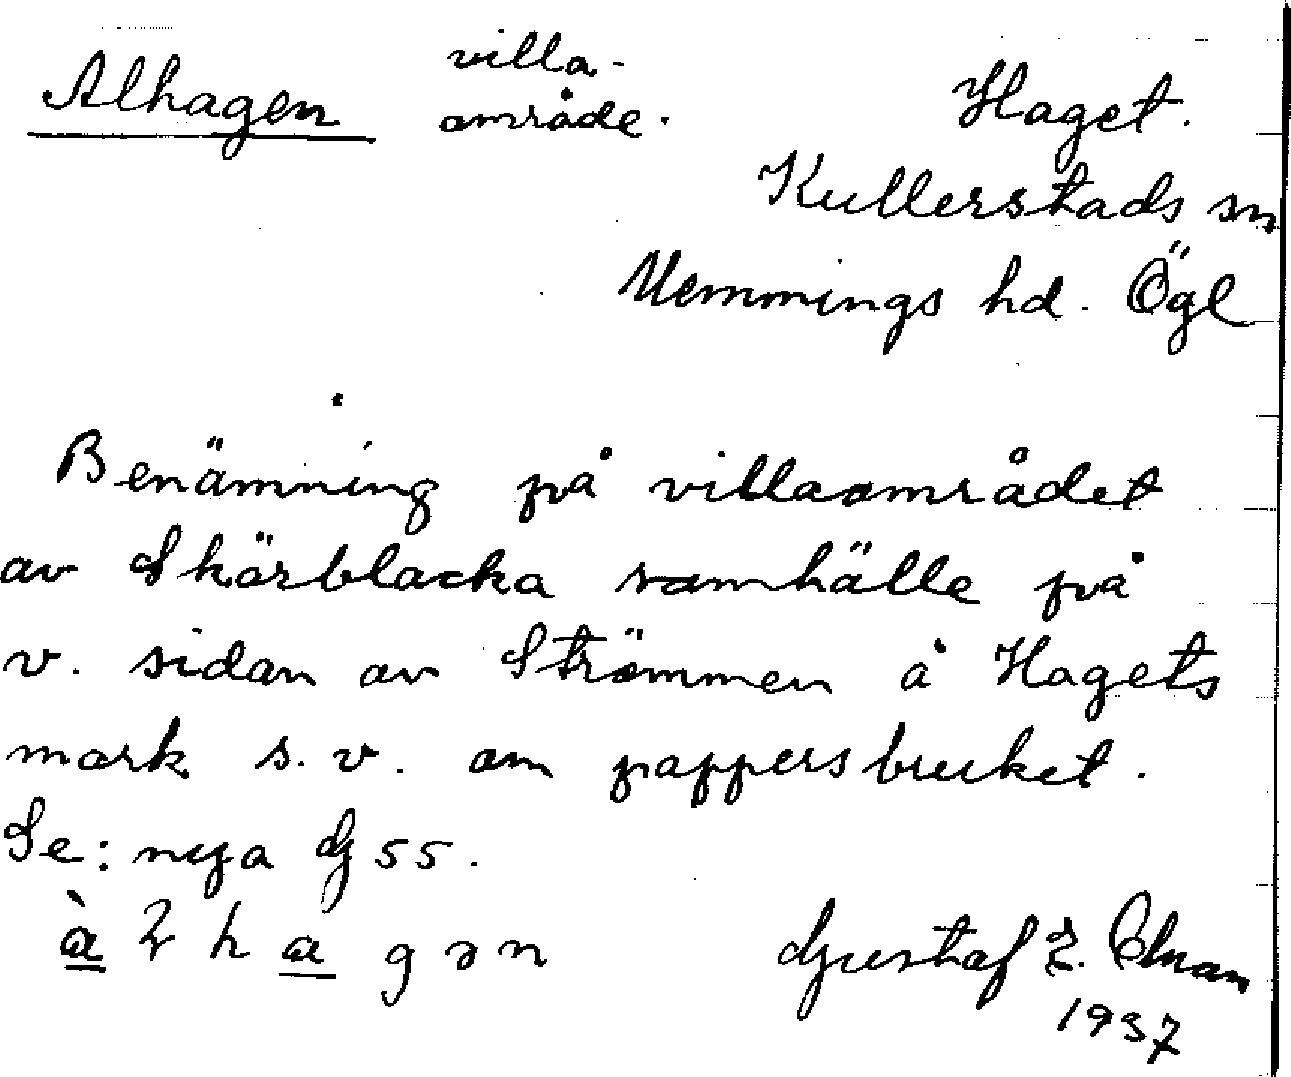 Alhagen villa-
område.
Haget.
Kullerstads sn
Memmings hd. Ögl
Benämning på villaområdet
av Skärblacka samhälle på
v. sidan av Strömmen å Hagets
mark s.v. om pappersbruket.
Se: nya G 55.
Gustaf E.
1937